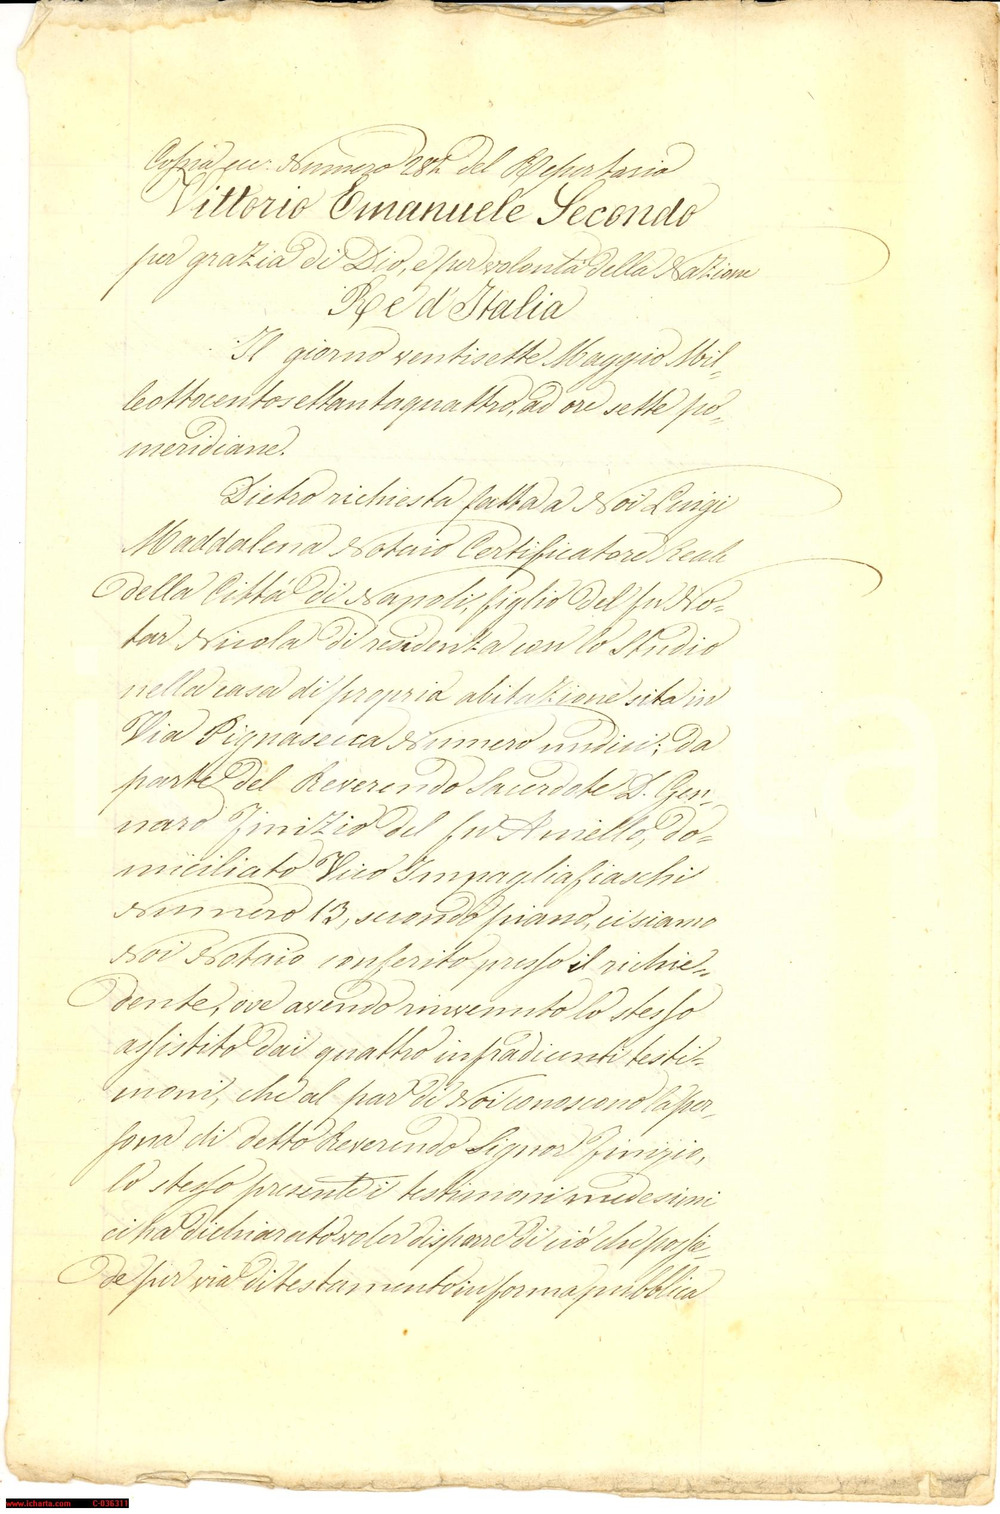 Copia ecc. Numero 282 del Repertorio
Vittorio Emanuele Secondo
per grazia di Dio, e per volontà della Nazione
Re d'Italia
Il giorno ventisette Maggio Mil-
leottocentosettantaquattro, ad ore sette po-
meridiane.
Dietro richiesta fatta a Noi Luigi
Maddalena Notaio Certificatore Reale
della Città di Napoli, figlio del fu No-
tar Nicola di residenza con lo Studio
nella casa di propria abitazione sita in
Via Pignasecca Numero undici; da
parte del Reverendo Sacerdote D. Gen-
naro Finizio del fu Aniello, do-
miciliato Vico Impagliafiaschi
Numero 13, secondo piano, ci siamo
Noi Notaio conferito presso il richie-
dente, ove avendo rinvenuto lo stesso
assistito dai quattro infradicenti testi-
moni, che al par di Noi conoscono la per-
sona di detto Reverendo Signor Finizio,
lo stesso presenti i testimoni medesimi
ci ha dichiarato voler disporre di ciò che possie-
de per via di testamento in forma pubblica
www.icharta.com C-036311